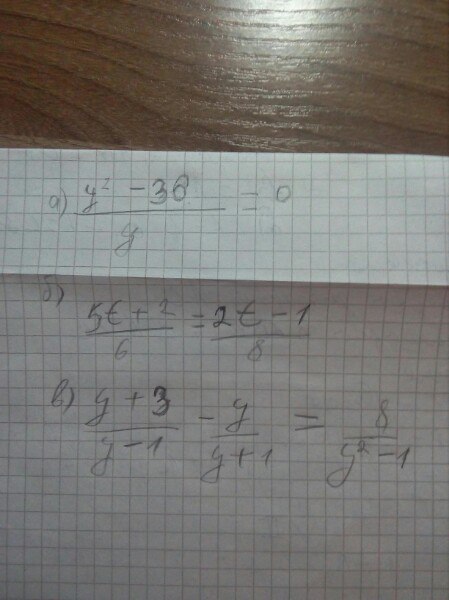 а) (y² - 36)/y = 0
б) (5t + 2)/6 = (2t - 1)/8
в) (y + 3)/(y - 1) - y/(y + 1) = 8/(y² - 1)